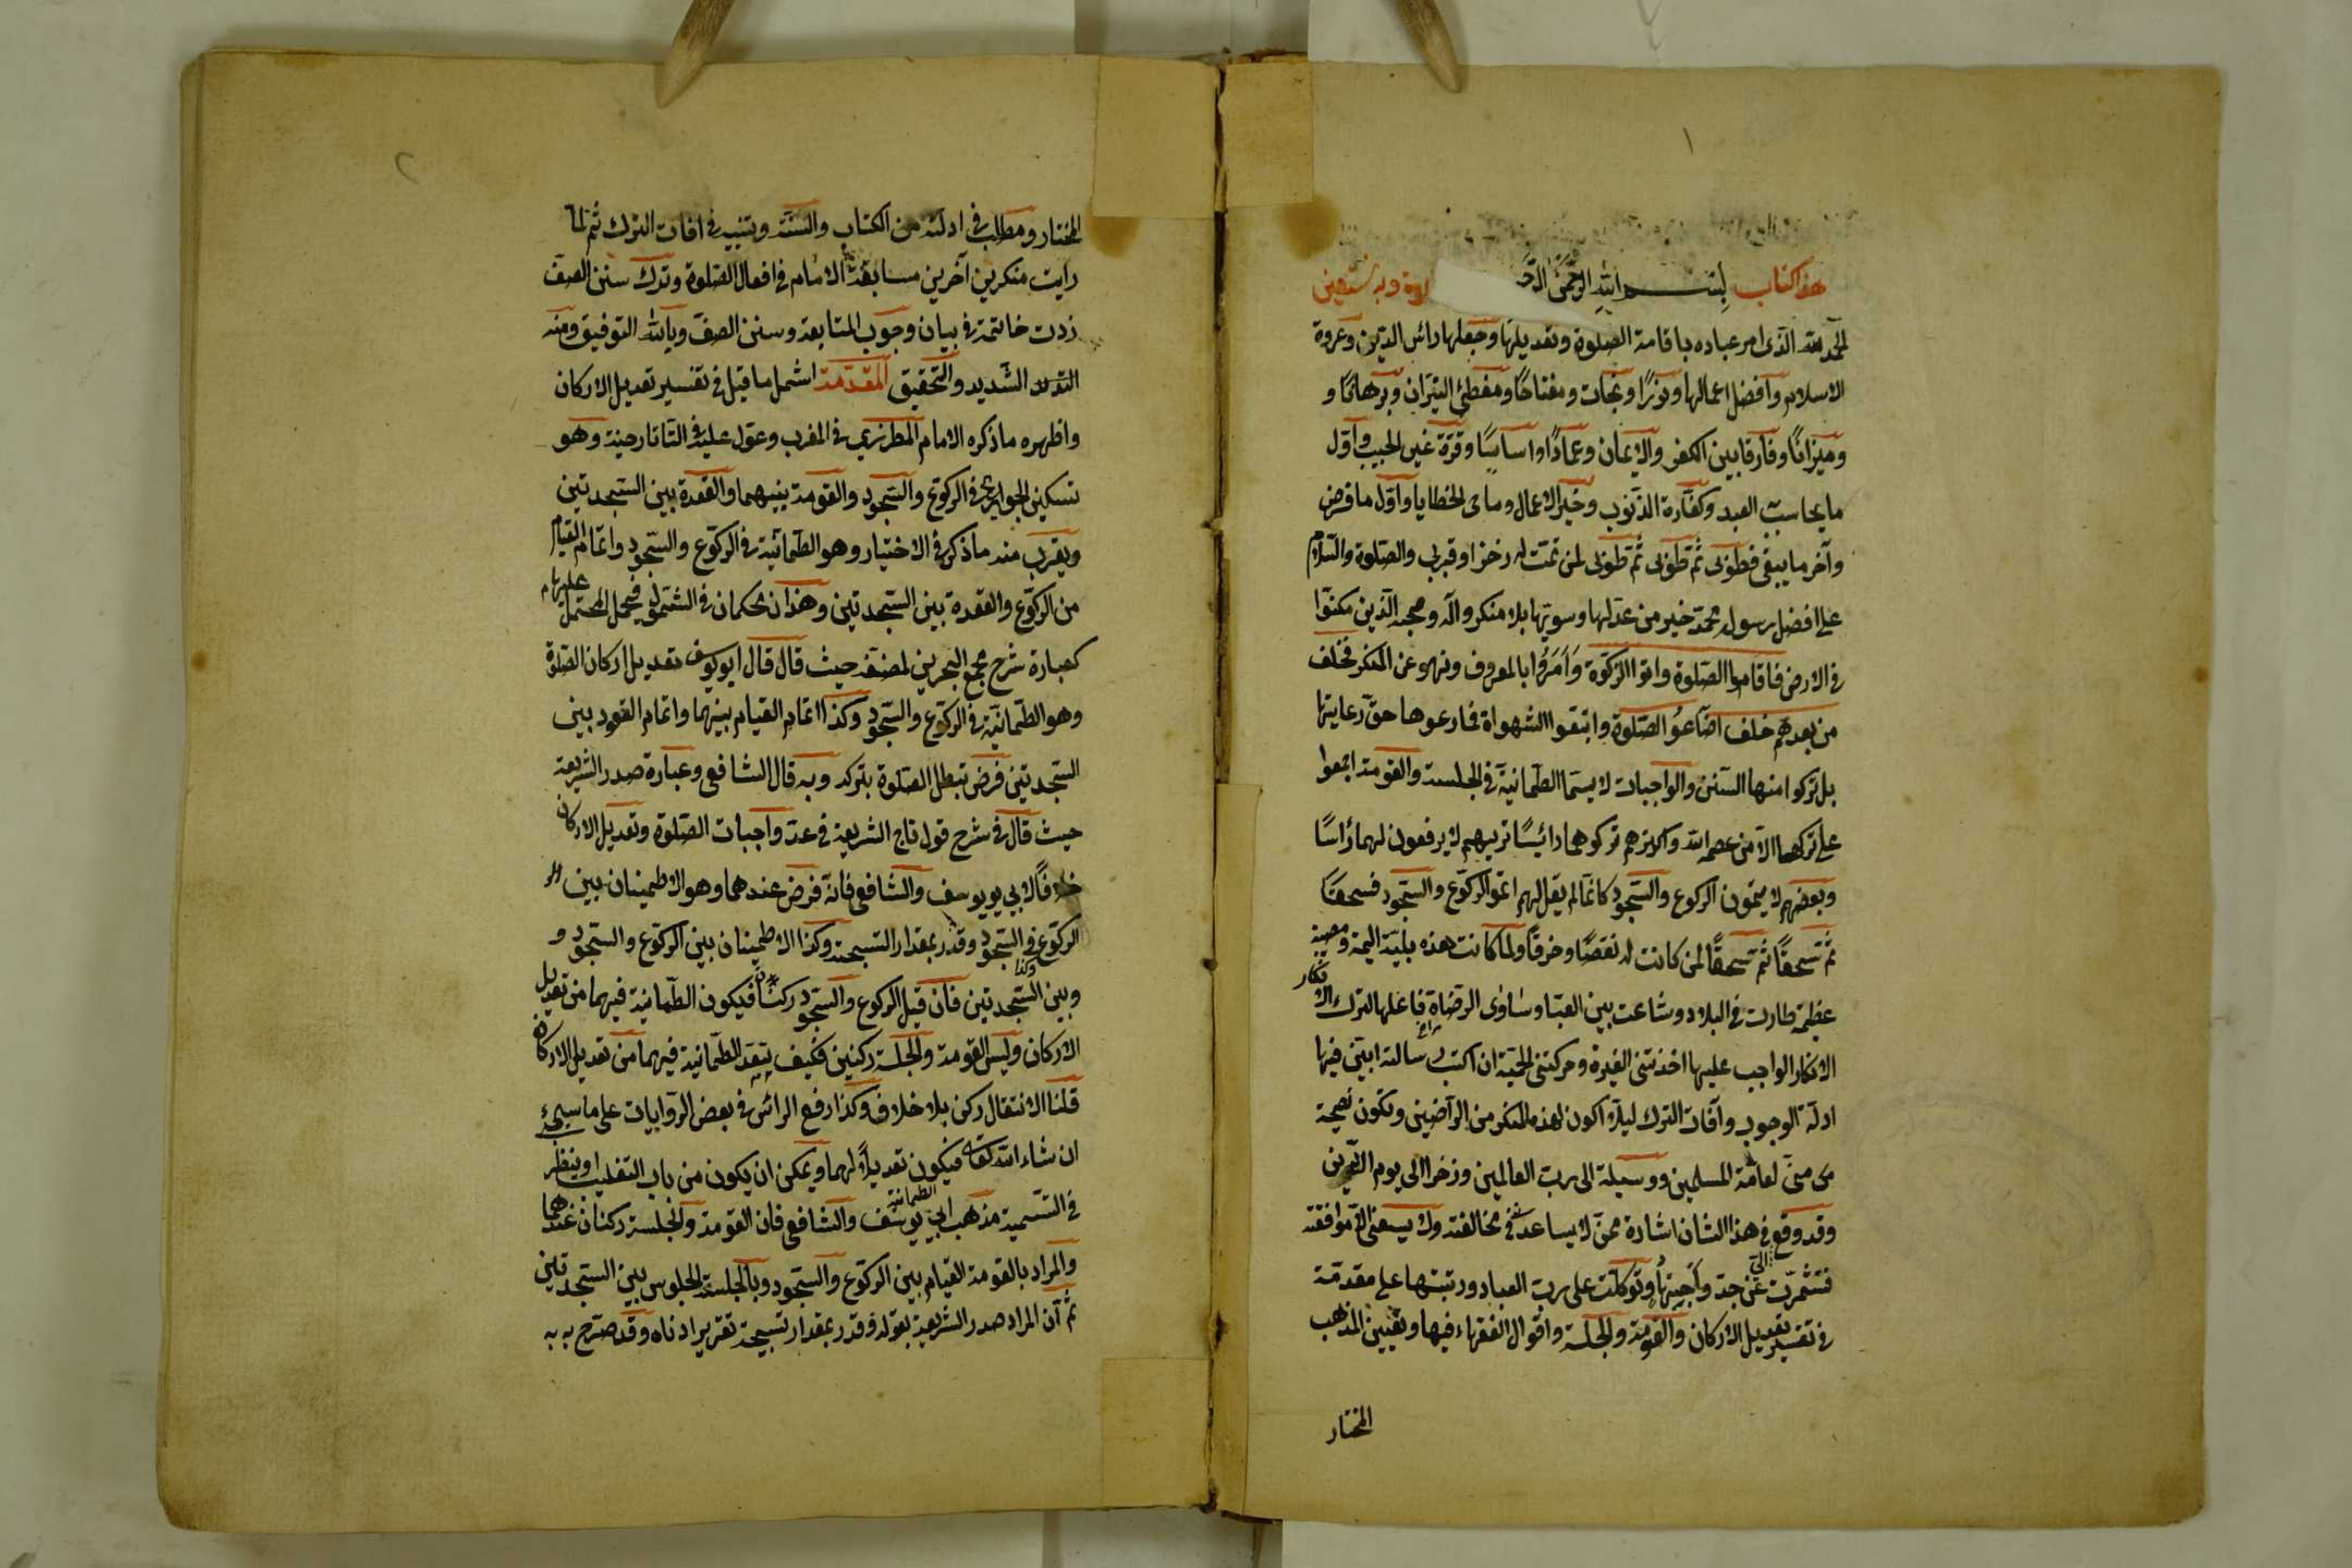 ١
هذا كتاب بسم الله الرحمن الرحـ لاة وبه نستعين
الحمد لله الذى امر عباده باقامة الصلوة وتعديلها وجعلها رائس الدين وعروة
الاسلام وافضل اعمالها ونورًا ونجات ومفتاحًا ومطفئ النيران وبرهانًا و
وميزانًا وفارقا بين الكفر والايمان وعمادًا واساسًا وقرة عين الحبيب واول
ما يحاسب العبد وكفارة الذنوب وخير الاعمال وماحى الخطايا واول ما فرض
وآخر ما يبقى فطوبى ثم طوبى ثم طوبى لمن تمت له ذخرا وقربى والصلوة والسلام
على افضل رسول محمد خير من عدلها وسويها بلا منكر وآله وصحبه الذين مكنوا
فى الارض فاقاموا الصلوة واتوا الزكوة وَاَمَرُوا بالمعروف ونهو عن المنكر فخلف
من بعدهم خلف اضاعوُ الصلوة واتبقوا الشهواة فمارعوها حق رعايتها
بل تركوا منها السنن والواجبات لا يسما الطمانية فى الجلسة والقومة اجمعوا
على تركهما الا من عصمه الله واكثرهم تركوهما رائسًا تريهم لا يرفعون لهما رأسًا
وبعضهم لا يتمون الركوع والسجود كانما لم يقل لهم اتمو الركوع والسجود فسحقًا
ثم سحقًا ثم سحقًا لمن كانت له نقصًا وخرقًا ولما كانت هذه بلية اليمة ومصيبة
عظيمة طارت فى البلاد وشاعت بين العباد وساوى الرضاة فاعلها الترك الانكار
الانكار الواجب عليها اخذتنى الغيرة وحركتنى الحمية ان اكتب رسالة ابين فيها
ادلة الوجوب وآفات الترك ليلا اكون لهذه المنكر من الراضين وتكون نصيحة
منى لعامة المسلمين ووسيلة الى رب العالمين وذخرا الى يوم الدين
وقد وقع فى هذا الشان اشارة ممن لا يساعدنى فى مخالفته ولا يسعنى الا موافقته
فتشمرت عن جد واجبتها وتوكلت على رب العباد ورتبتها على مقدمة
فى تفسير تعديل الاركان والقومة والجلسة واقوال الفقهاء فيها وتعيين المذهب
المختار
٢
المختار ومطلب فى ادلته من الكتاب والسنة وتنبيه فى افات الترك ثم لما
رايت منكرين آخرين مسابقة الامام فى افعال الصلوة وترك سنن الصف
زدت خاتمة فى بيان وجوب المتابعة وسنن الصف وبالله التوفيق ومنه
الشديد والتحقيق المقدمة اشمل ما قيل فى تفسير تعديل الاركان
واظهره ما ذكره الامام المطرزي فى المغرب وعول عليه فى التاتارحنية وهو
تسكين الجوارح فى الركوع والسجود والقومة بينهما والقعدة بين السجدتين
ويقرب منه ما ذكر فى الاختيار وهو الطمائنية فى الركوع والسجود واتمام القيام
من الركوع والقعدة بين السجدتين وهذان محكمان فى الشمول فيحمل المحتمل عليهما
كعبارة شرح مجمع البحرين لمصنفه حيث قال قال ابو يوسف تعديل اركان الصلوة
وهو الطمانية فى الركوع والسجود وكذا اتمام القيام بينهما واتمام القعود بين
السجدتين فرض تبطل الصلوة بتركه وبه قال الشافعى وعبارة صدر الشريعة
حيث قال فى شرح قول تاج الشريعة فى عد واجبات الصلوة وتعديل الاركان
خلافًا لابى يوسف والشافعى فانه فرض عندهما وهو الاطمينان بين
الركوع فى السجود وقدر بمقدار التسبيحة وكذا الاطمينان بين الركوع والسجود و
وبين السجدتين فان قيل الركوع والسجود ركنان فيكون الطمانية فيهما من تعديل
الاركان وليس القومة والجلسة ركنين فكيف يتعد الطمانية فيهما من تعديل الاركان
قلنا الانتقال ركن بلا خلاف وكذا رفع الرائس فى بعض الروايات على ما سيجئ
ان شاء الله تعالى فيكون تعديلاً لهما ويمكن ان يكون من باب التغليب او ينظر
فى التسمية مذهب ابى يوسف والشافعى فان القومة والجلسة ركنان عندهما
والمراد بالقومة القيام بين الركوع والسجود وبالجلسة الجلوس بين السجدتين
ثم ان المراد صدر الشريعة بقوله وقدر بمقدار تسبيحة تقرير ادناه وقد صرح به به